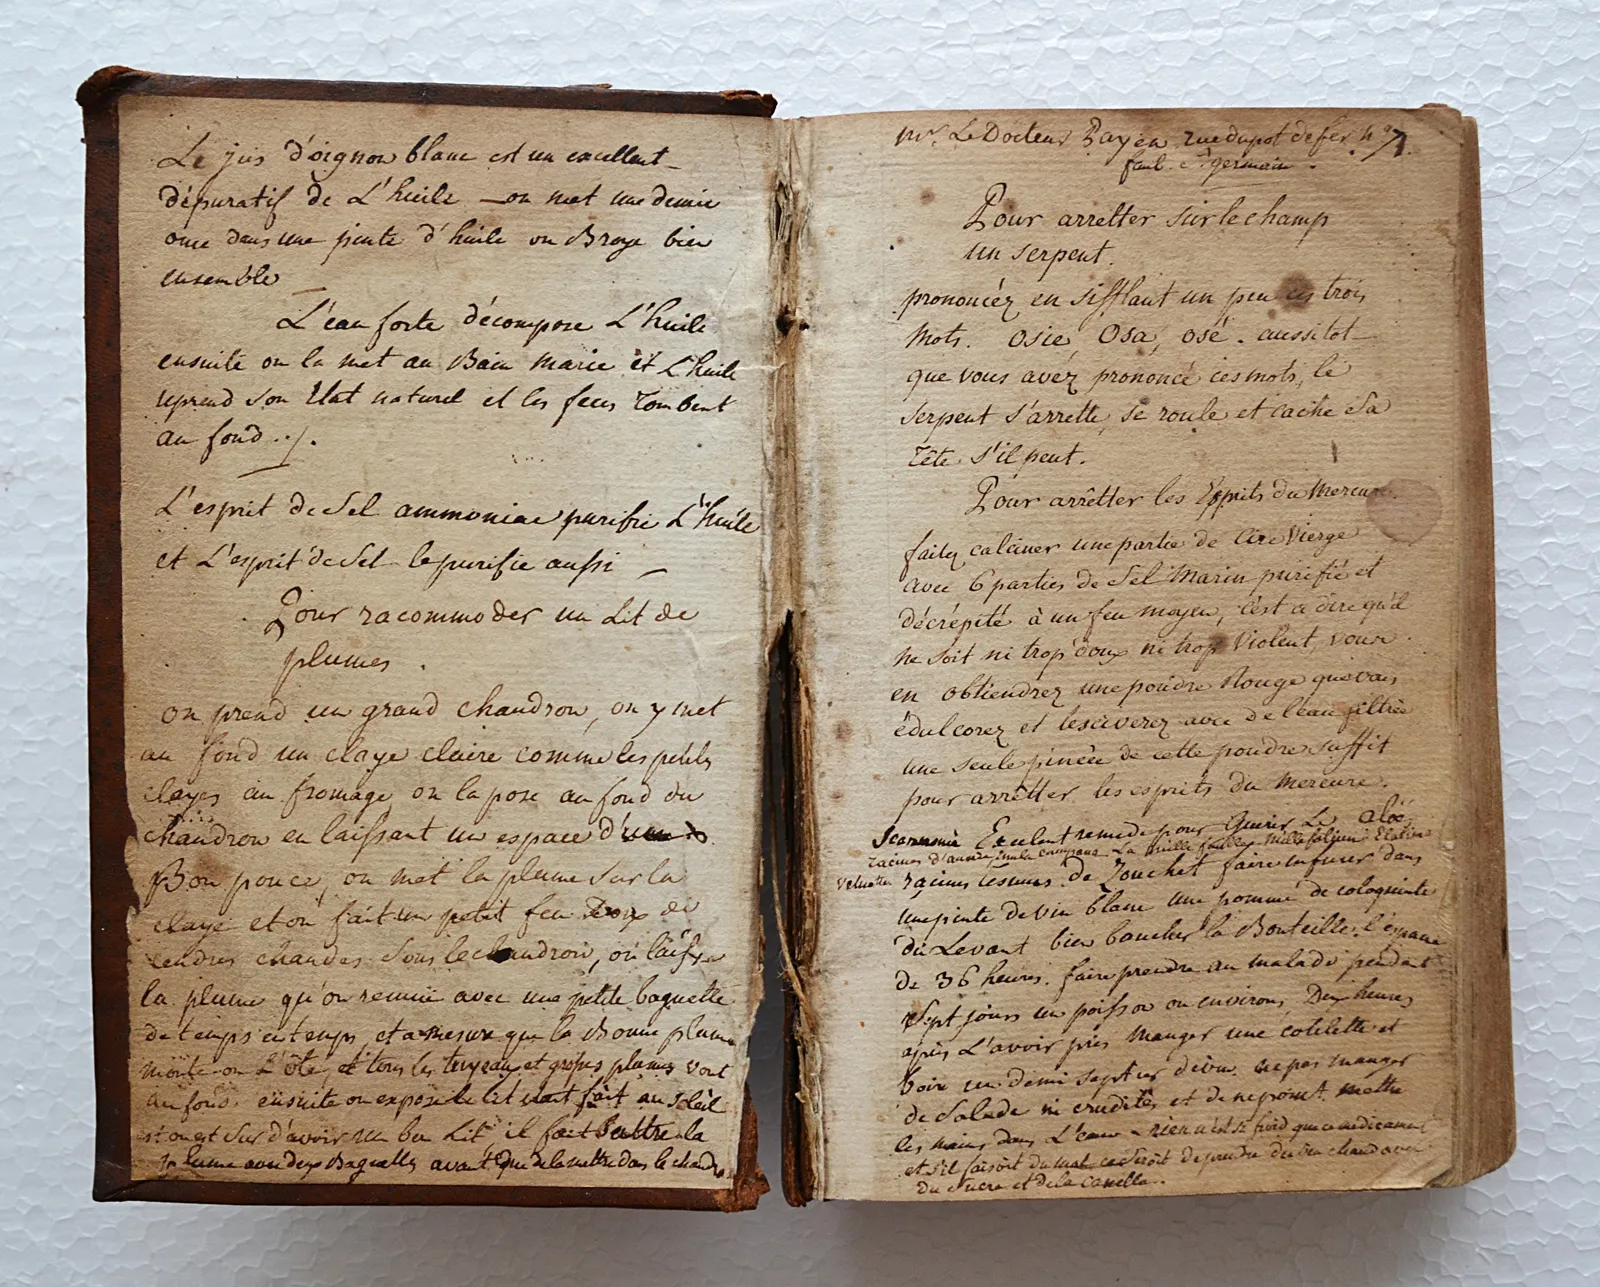 Le jus d'oignon blanc est un excellent
dépuratif de L'huile – on met une demie
once dans une pinte d'huile on Broye bien
ensemble
L'eau forte décompose L'huile
ensuite on la met au Bain marie et L'huile
reprend son Etat naturel et les feces Tombent
au fond ./.
L'esprit de sel ammoniac purifie L'huile
et L'esprit de Sel le purifie aussi –
Pour racommoder un Lit de
plumes.
on prend un grand chaudron, on y met
au fond un claye claire comme les petits
clayes au fromage on la pose au fond du
chaudron en laissant un espace d'un
Bon pouce, on met la plume sur la
claye et on fait un petit feu Doux de
cendres chaudes sous le chaudron, on laisse
la plume qu'on remue avec une petite baguette
de temps en temps, et a mesure que la Bonne plume
monte on L'ôte, et tous les tuyeaux et grosses plumes vont
au fond. ensuite on expose le lit tout fait au soleil
et on est sur d'avoir un bon Lit, il faut battre la
plume avec deux Baguettes avant que de la mettre dans le chaudron
Mr. Le Docteur Payen rue du pot de fer n° 7.
faub. St germain.
Pour arretter sur le champ
un serpent.
prononcéz en sifflant un peu ces trois
Mots. osie, Osa, osé. aussitot
que vous avéz prononcé ces mots, le
serpent s'arrette, se roule et cache sa
Tête s'il peut.
Pour arrêtter les Esprits du Mercure.
faites calciner une partie de Cire Vierge
avec 6 parties de Sel Marin purifié et
décrépité à un feu moyen, c'est a dire qu'il
ne soit ni trop doux ni trop Violent, vous
en obtiendrez une poudre Rouge que vous
édulcorez et lescivrez avec de l'eau filtrée
une seule pincée de cette poudre suffit
pour arrêtter les esprits du Mercure.
Scammonée Exelent remede pour Guerir Le aloë
racines d'aunée inula campana La mille feuille Millefolium
racines de Souchet faire infuser dans
une pinte de vin blanc une pomme de coloquinte
du Levant bien boucher la Bouteille. l'espace
de 36 heures. faire prendre au malade pendant
Sept jours un poisson ou environs, Deux heures
après L'avoir pris manger une cotelette et
boire un demi septier de vin. ne pas manger
de Salade ni crudités et de ne point mettre
les mains dans L'eau – rien n'est si froid que ce médicament
et s'il faisoit du mal ce seroit de prendre du vin chaud avec
du sucre et de la canelle.